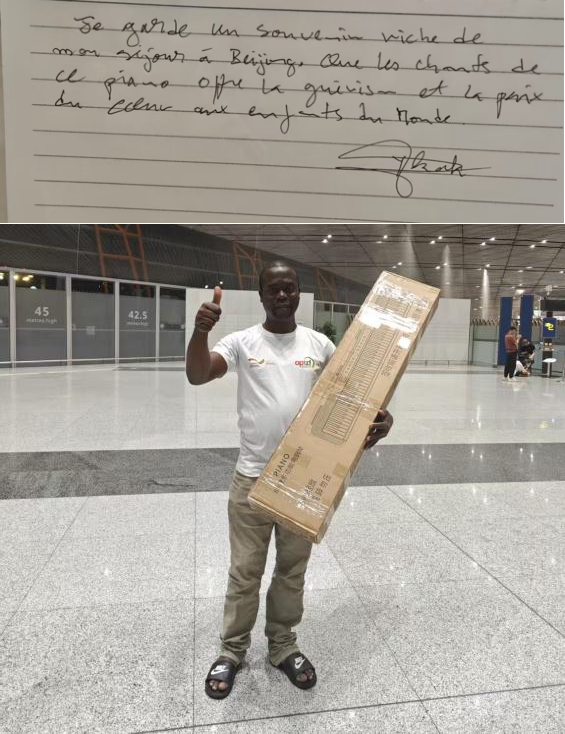 Je garde un souvenir riche de
mon séjour à Beijing. Que les chants de
ce piano offre la guérison et la paix
du cœur aux enfants du Monde.
45
metres high
42.5
metres high
PIANO